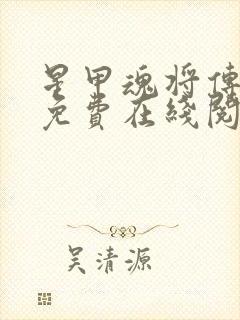 星甲魂将傳
免費在綫閱
吴清源